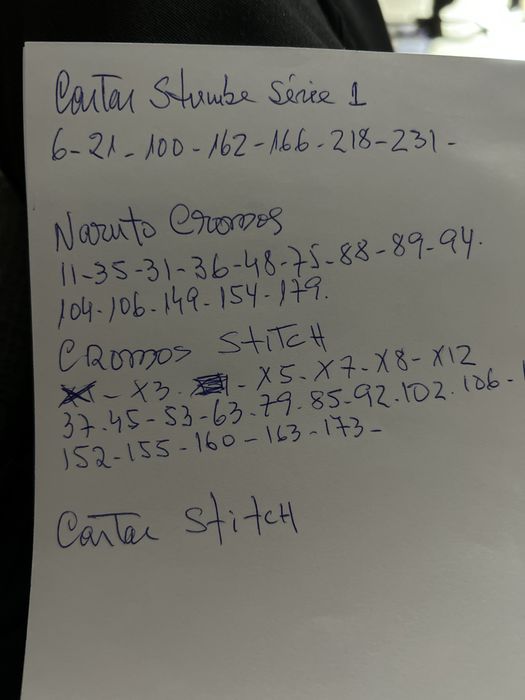 Cartas Stumbe Série 1
6-21-100-162-166-218-231-
Naruto Cromos
11-35-31-36-48-75-88-89-94.
104-106-149-154-179.
CROMOS STITCH
- X3. - X5-X7-X8-X12
37-45-53-63-79-85-92-102.106-
152-155-160-163-173-
Cartas StitcH